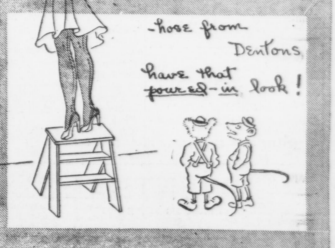 -hose from
Dentons
have that
poured-in look!